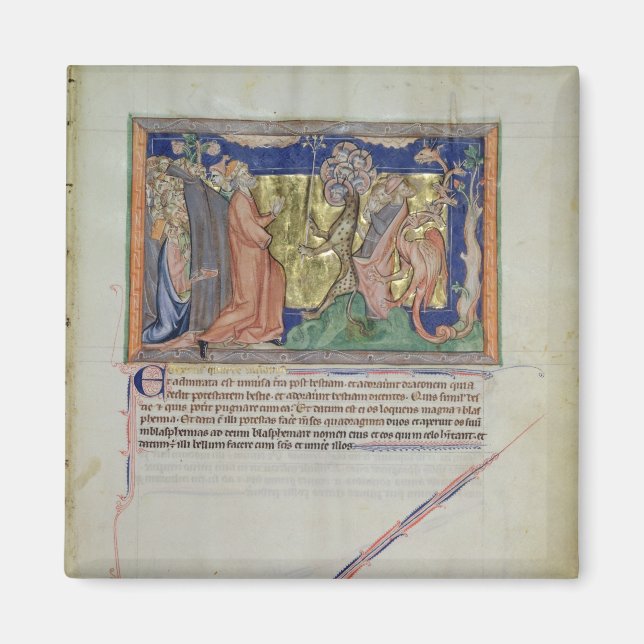 Et admirata est uniuersa t̄ra post bestiam. et adorauer̄t draconem quia
dedit potestatem bestie. et adorauer̄t bestiam dicentes. Quis simil' bes
tie & quis potit pugnare cum ea. Et datum est ei os loquens magna & blas
phemia. Et data ē illi potestas face m̄ses quadraginta duos et aperuit os suū
in blasphemias ad deum blasphemare nomen eius et eos qui in celo h̄itant. et
datum ē illi bellum facere cum sc̄is et uince illos